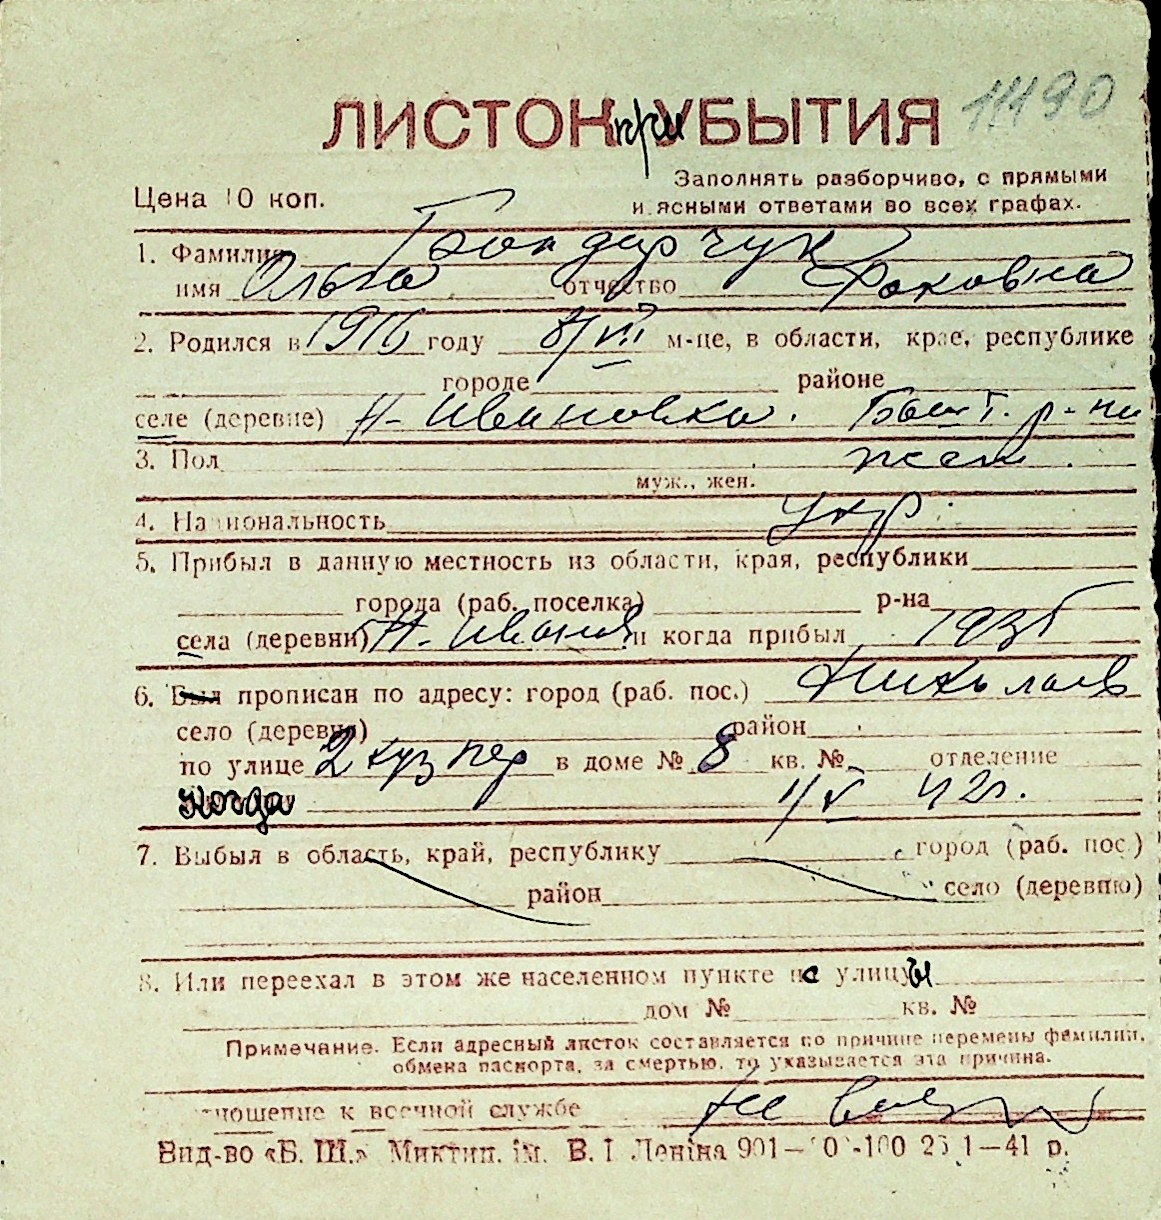 11490
ЛИСТОК при УБЫТИЯ
Заполнять разборчиво, с прямыми
и ясными ответами во всех графах.
Цена 10 коп.
1. Фамилия Бондарчук
имя Ольга отчество Фоковна
2. Родился в 1916 году 8/VII м-це, в области, крае, республике
городе районе
селе (деревне) Н-Ивановка. Башт. р-на
3. Пол жен.
муж., жен.
4. Национальность укр.
5. Прибыл в данную местность из области, края, республики
города (раб. поселка) р-на
села (деревни) Н-Иванов и когда прибыл 193
6. Был прописан по адресу: город (раб. пос.) Николаев
село (деревня) район
по улице 2 куз пер в доме № 8 кв. № отделение
когда 1/V 42г.
7. Выбыл в область, край, республику город (раб. пос.)
район село (деревню)
8. Или переехал в этом же населенном пункте с улицы
дом № кв. №
Примечание. Если адресный листок составляется по причине перемены фамилии,
обмена паспорта, за смертью, то указывается эта причина.
отношение к военной службе не
Вид-во «Б. Ш.» Миктип. ім. В. І Леніна 901— -100 1—41 р.